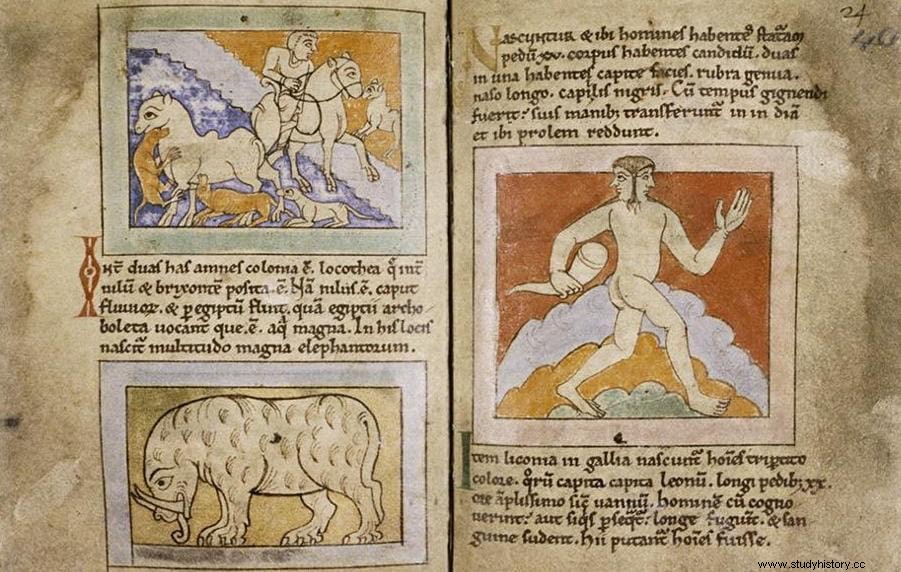 Int duas has amnes colonia ē. locothea q̄ int
nilū & brixontē posita .ē. Nā nilus .ē. caput
fluuioꝝ. & p egiptū fluit. quā egiptii archo
boleta uocant que .ē. aq̄ magna. In his locis
nascit̄ multitudo magna elephantorum.
24
Nascuntur & ibi homines habentes statām
pedū .xv. corpus habentes candidū. duas
in una habentes capite facies. rubra genua.
naso longo. capillis nigris. Cū tempus gignendi
fuerit: suis transferunt in in diā
et ibi prolem reddunt.
Item liconia in gallia nascunt̄ hoīes tripertito
colore. q̄rū capita capita leonū. longi pedibꝫ xx.
ore āplissimo sic̄ uannū. hominē cū cogno
uerint: aut siqs pseqt̄: longe fugiunt̄. & san
guine sudent. Hii putant̄ hoīes fuisse.
www.studyhistory.cc